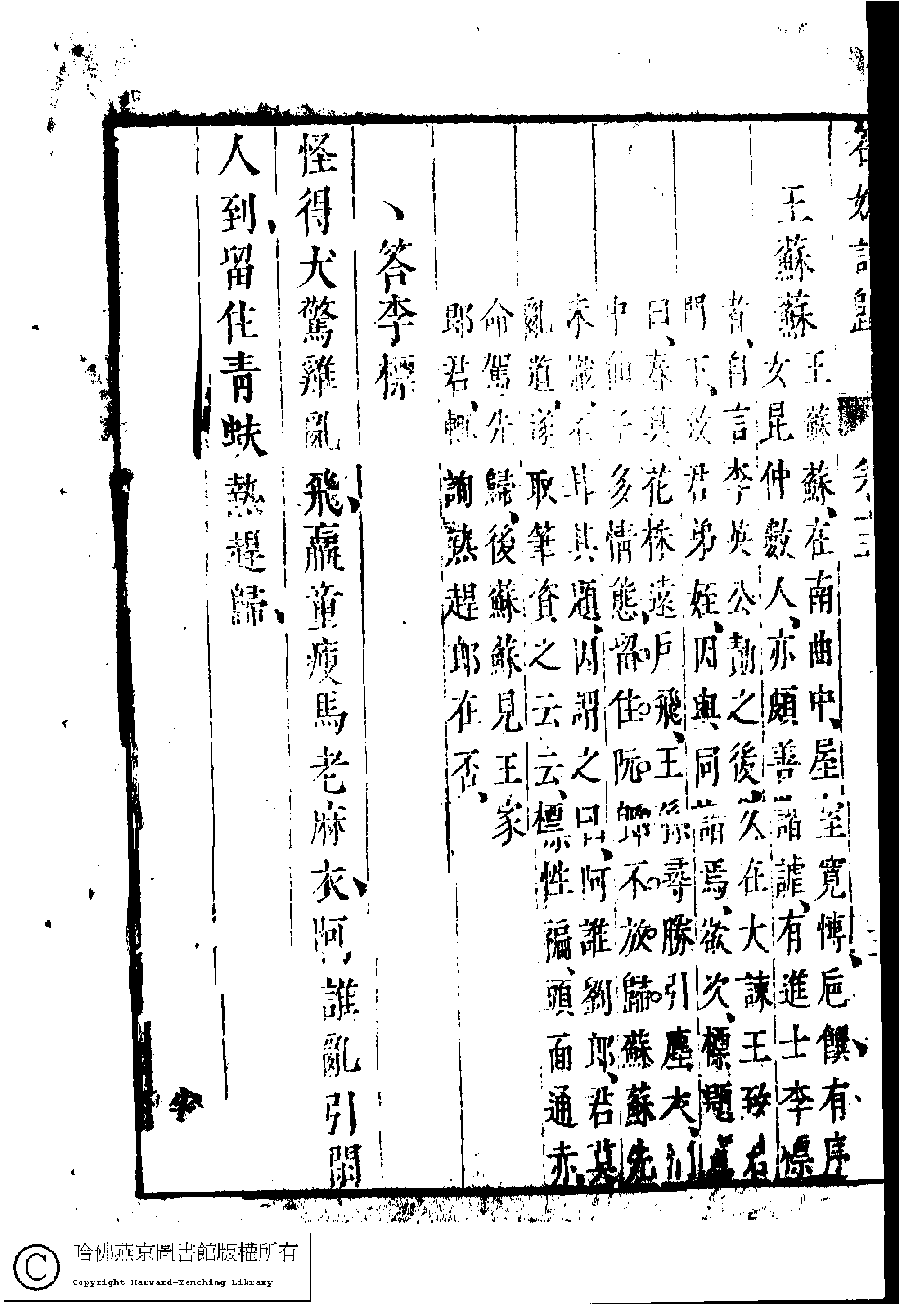 詩歸
王蘇蘇
王蘇蘇、在南曲中、屋室寬博、卮饌有序
女昆仲數人、亦頗善諧謔、有進士李標
者、自言李英公勣之後、久在大諫王致君
門下、致君弟姪、因與同詣焉、飲次、標題窓
曰、春暮花株遶戶飛、王孫尋勝引塵衣、洞
中仙子多情態、留住阮郎不放歸、蘇蘇先
未識、不甘其題、因謂之曰、阿誰劉郎、君莫
亂道、遂取筆資之云云、標性褊、頭面通赤、
命駕先歸、後蘇蘇見王家
郎君、輒詢熱趕郎在否、
答李標
怪得犬驚雞亂飛、羸童瘦馬老麻衣、阿誰亂引閑
人到、留住青蚨熱趕歸、
哈佛燕京圖書館版權所有
Copyright Harvard-Yenching Library